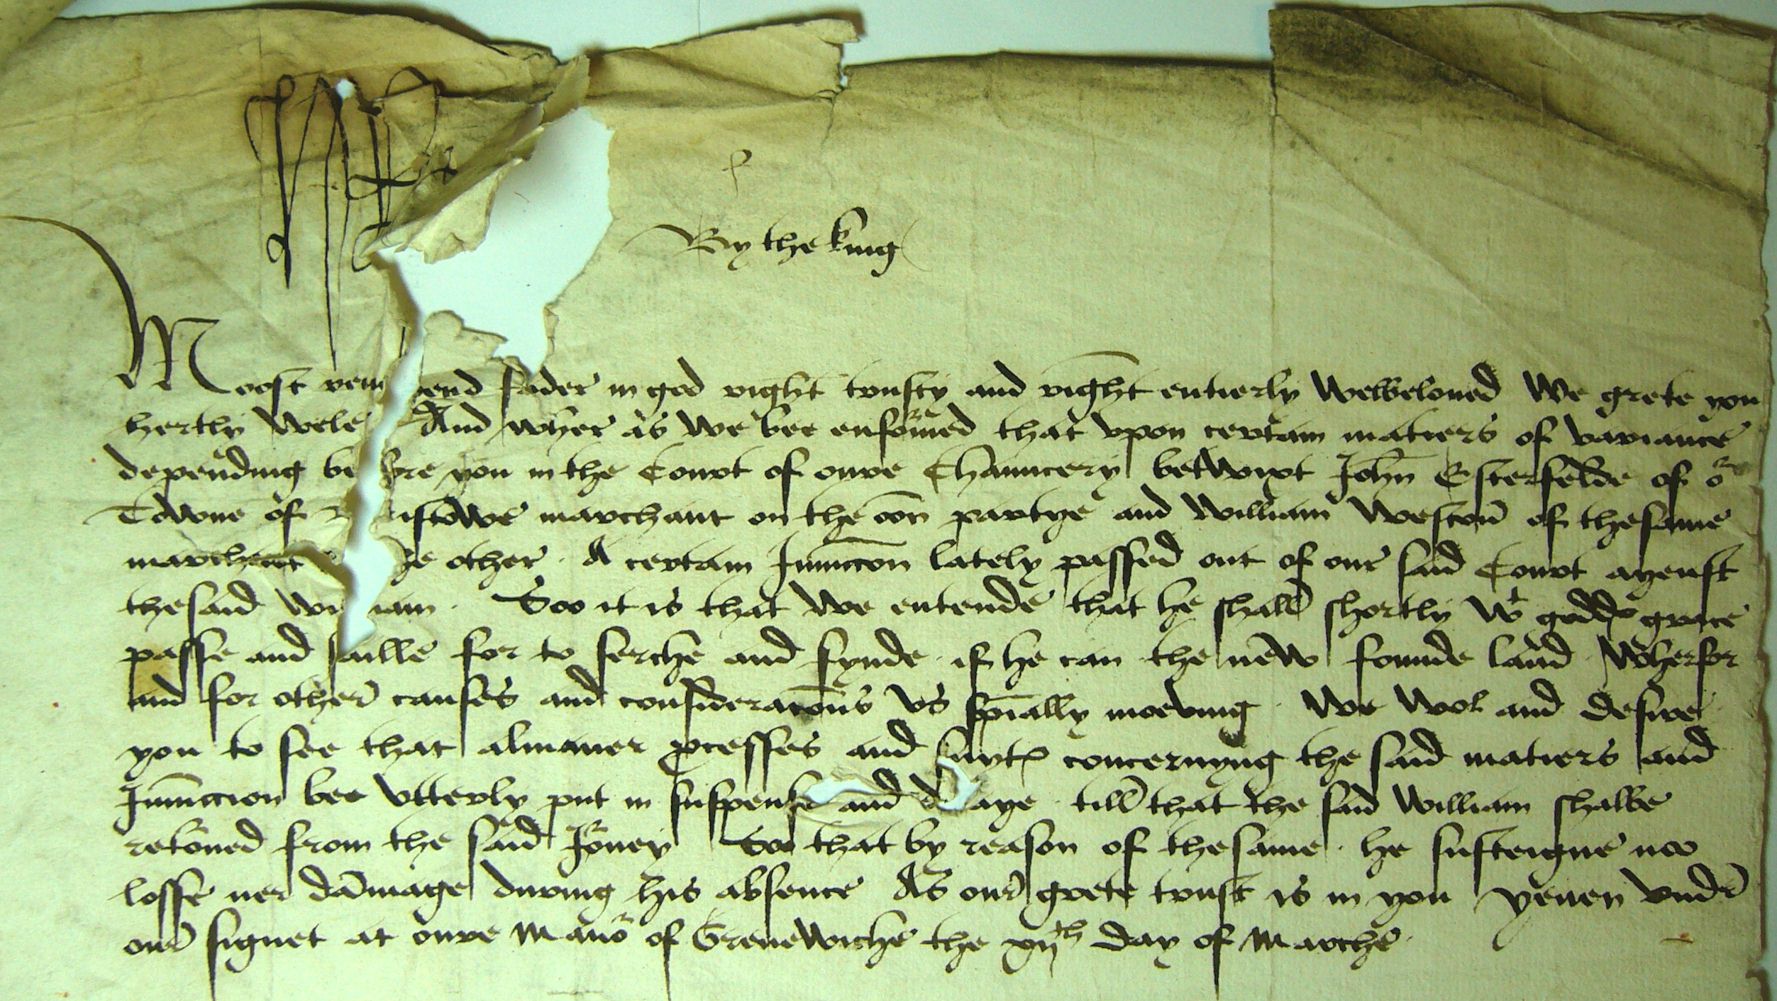 By the king
Moost rev end fader in god right trusty and right entierly Welbeloued We grete you
hertly Wele And wher as We bee enformed that vpon certain matiers of variance
depending be re you in the Court of oure Chauncery betwixt John Esterfelde of or
Towne of istowe marchant on the oon partye and William Weston of thesame
marchent he other . A certain Iniuccon lately passed out of our said Court ayenst
thesaid Wi iam . Soo it is that We entende that he shall shortly Wt godds grace
passe and saille for to serche and fynde if he can the new founde land Wherfor
and for other causes and consideracons vs spially moeving . We Wol and desire
you to see that almaner pcesses and suyts concernyng the said matiers and
Iniunccion bee vtterly put in suspense and d aye till that the said William shalbe
retorned from the said Iorney Soo that by reason of thesame . he susteigne noo
losse ner damage during his absence As our grete trust is in you yeuen vndre
our signet at oure Manor of Grenewiche the xijth day of Marche